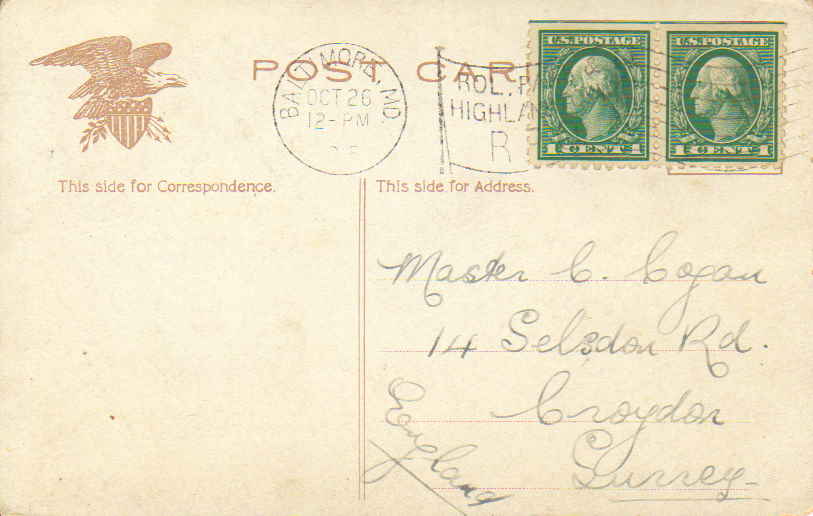 POST CAR
BALTIMORE, MD.
OCT 26
12-PM
ROL. PA
HIGHLAN
R
U.S. POSTAGE
1 CENT 1
U.S. POSTAGE
1 CENT 1
This side for Correspondence.
This side for Address.
Master C. Cogan
14 Selsdon Rd.
Croydon
Surrey
England